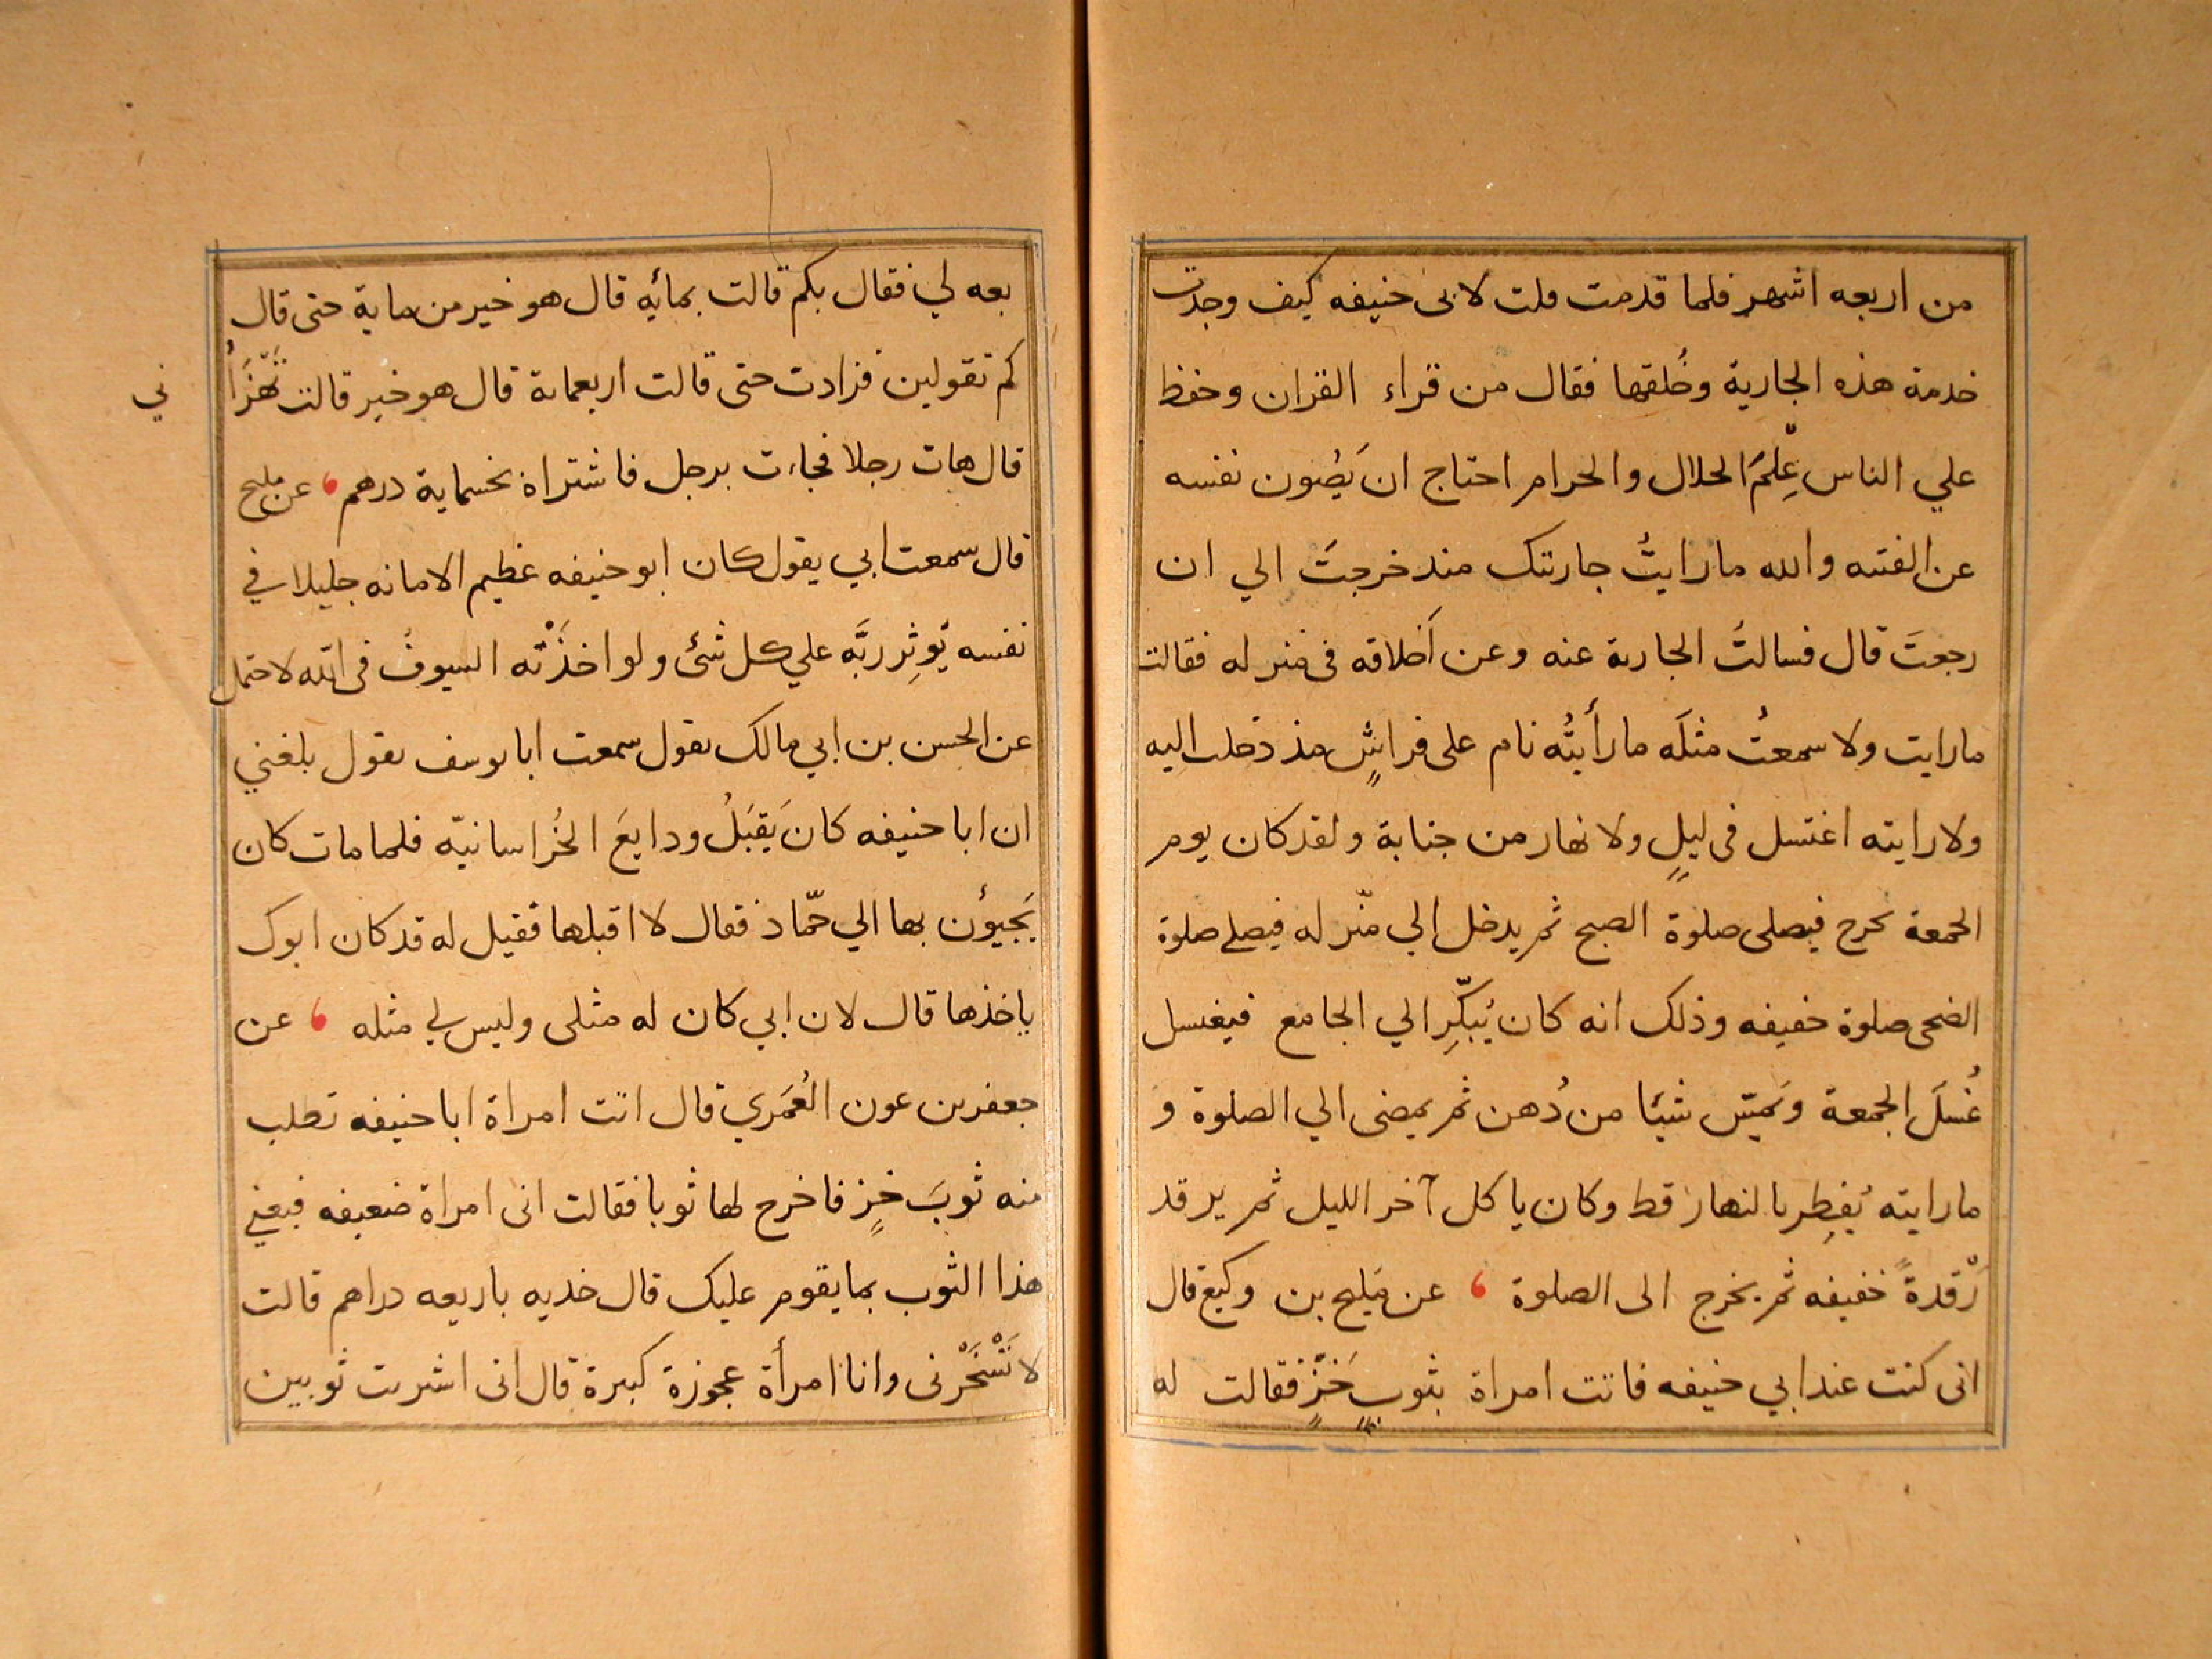 من اربعه اشهر فلما قدمت قلت لابى حنيفه كيف وجدت
خدمة هذه الجارية وخُلقها فقال من قراء القران وحفظ
علي الناس عِلمَ الحلال والحرام احتاج ان يَصُون نفسه
عن الفتنه والله ما رايتُ جاريتك منذ خرجتَ الي ان
رجعتَ قال فسالتُ الجارية عنه وعن اَخلاقه فى منزله فقالت
ما رايت ولا سمعتُ مثلَه ما رأيتُه نام على فراشٍ منذ دخلت اليه
ولا رايته اغتسل فى ليلٍ ولا نهار من جنابة ولقد كان يوم
الجمعة يخرج فيصلى صلوة الصبح ثم يدخل الي منزله فيصلي صلوة
الضحى صلوة خفيفه وذلك انه كان يُبكّرِ الي الجامع فيغتسل
غُسلَ الجمعة ويَمسّ شيئا من دُهن ثم يمضى الي الصلوة و
ما رايته يُفطِر بالنهار قط وكان ياكل آخر الليل ثم يرقد
رَقْدةً خفيفه ثم يخرج الى الصلوة ، عن مَليح بن وكيع قال
انى كنت عند ابي حنيفه فاتت امراة بثوبِ خَزٍّ فقالت له
بعه لي فقال بكم قالت بمائه قال هو خير من ماية حتى قال
كم تقولين فزادت حتى قالت اربعماىة قال هو خير قالت تَهْزَأُ
ني
قال هات رجلا فجاءت برجل فاشتراه بخسماية درهم ، عن مليح
قال سمعت ابي يقول كان ابو حنيفه عظيم الامانه جليلا في
نفسه يُوثِر ربَّه علي كل شئ ولو اخذَتْه السيوفُ فى الله لاحتمل
عن الحسن بن ابي مالك يقول سمعت ابا يوسف يقول بلغني
ان ابا حنيفه كان يَقبَلُ ودايعَ الخُراسانيّه فلما مات كان
يَجيؤن بها الي حمّاد فقال لا اقبلها فقيل له قد كان ابوك
ياخذها قال لان ابي كان له مثلى وليس لي مثله ، عن
جعفر بن عون العُمَري قال اتت امراة ابا حنيفه تطلب
منه ثوبَ خزٍ فاخرج لها ثوبا فقالت انى امراة ضعيفه فبعني
هذا الثوب بما يقوم عليك قال خديه باربعه دراهم قالت
لا تَسْخَرْنى وانا امرأة عجوزة كبيرة قال انى اشتريت ثوبين